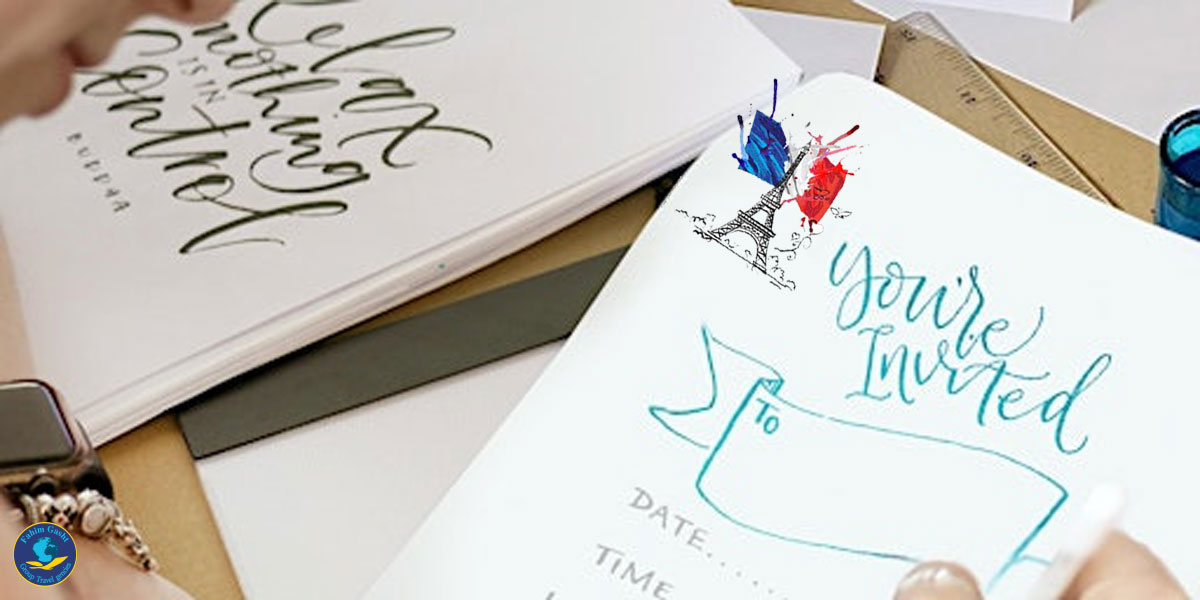 Relax
nothing
IS IN
Control
BUDDHA
You're
Invited
To
DATE.......
TIME
Fahim Gasht